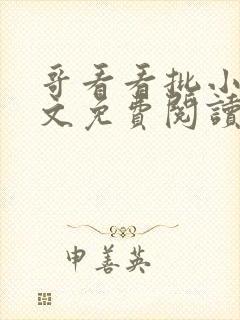 哥看看批小
文免費閱讀
申善英